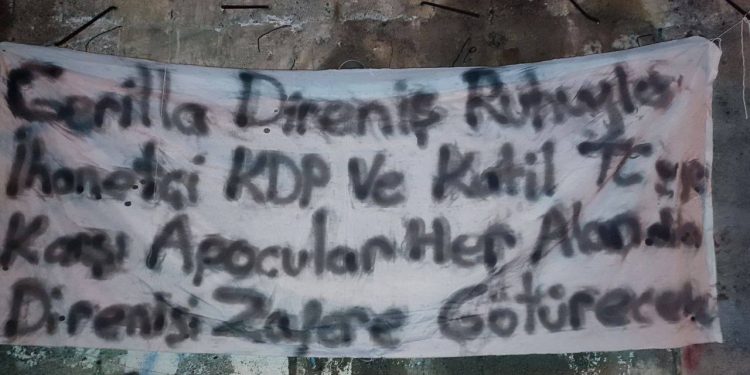 Gerilla Direniş Ruhuyla
İhanetçi KDP Ve Katil TC ye
Karşı Apocular Her Alanda
Direnişi Zafere Götürecek